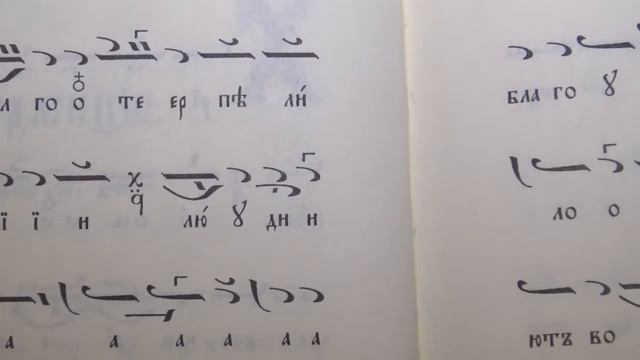 л го о те ер пѣ ли́
ї ї и лю́ ꙋ ди и
а а а а а а
бла го ꙋ
ло о
ютъ во